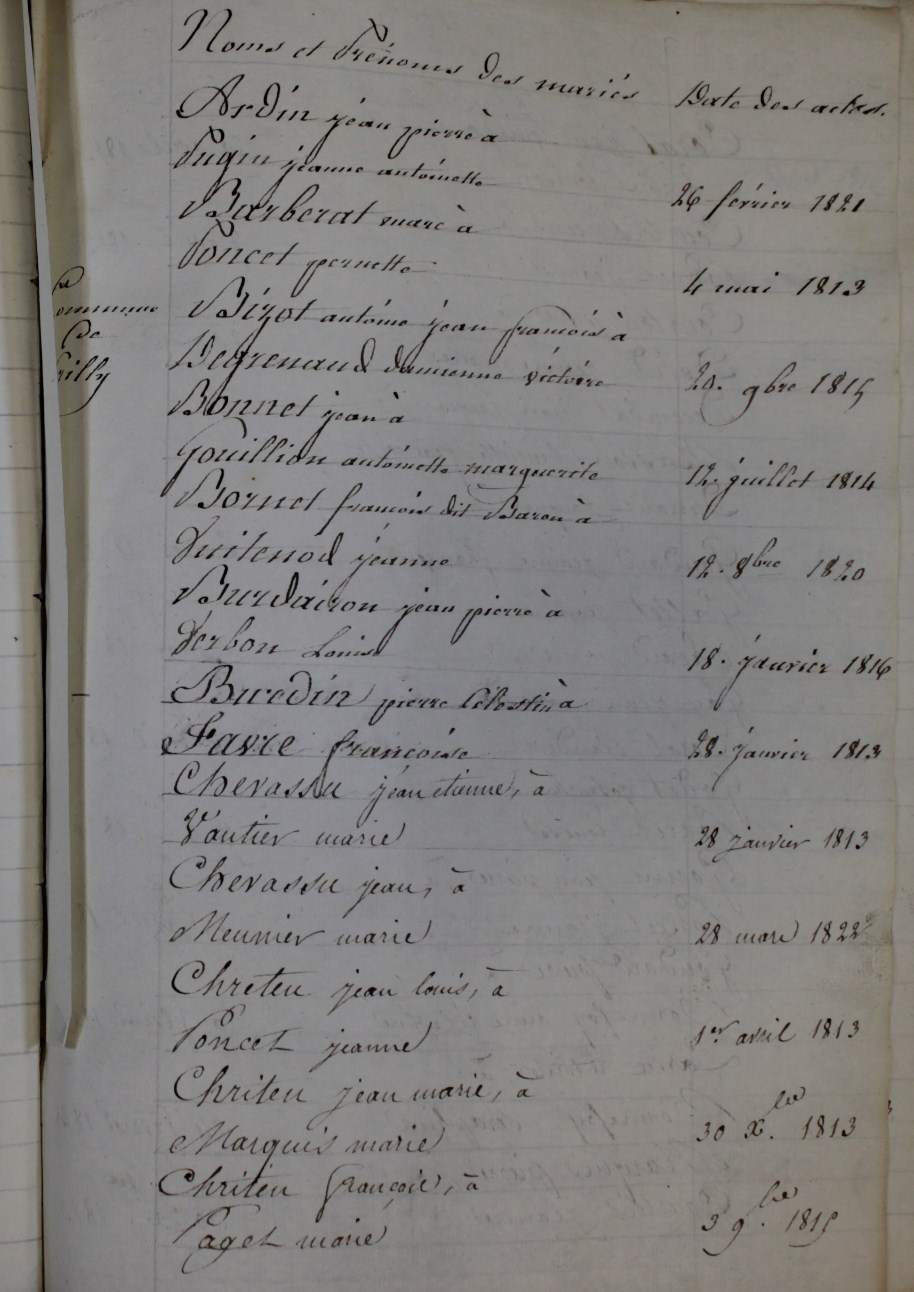 Noms et Prénoms des mariés
Date des actes.
Ardin jean pierre à
Pugin jeanne antoinette
26 février 1821
Barberat marc à
Poncet pernette
4 mai 1813
ommune
de
illy
Bizot antoine jean francois à
Degrenaud damienne victoire
20. 9bre 1815
Bonnet jean à
Gouillion antoinette marguerite
12. juillet 1814
Bornet francois dit Baron à
Duitenod jeanne
12. 8bre 1820
Burdairon jean pierre à
Verbon Louise
18. janvier 1816
Burdin pierre Celestin à
Favre francoise
28. janvier 1813
Chevassu jean etienne, à
Vautier marie
28 janvier 1813
Chevassu jean, à
Meunier marie
28 mars 1822
Chreten jean louis, à
Poncet jeanne
1er avril 1813
Chriten jean marie, à
Marquis marie
30 Xbre. 1813
Chriten François, à
Paget marie
3 9bre. 1815